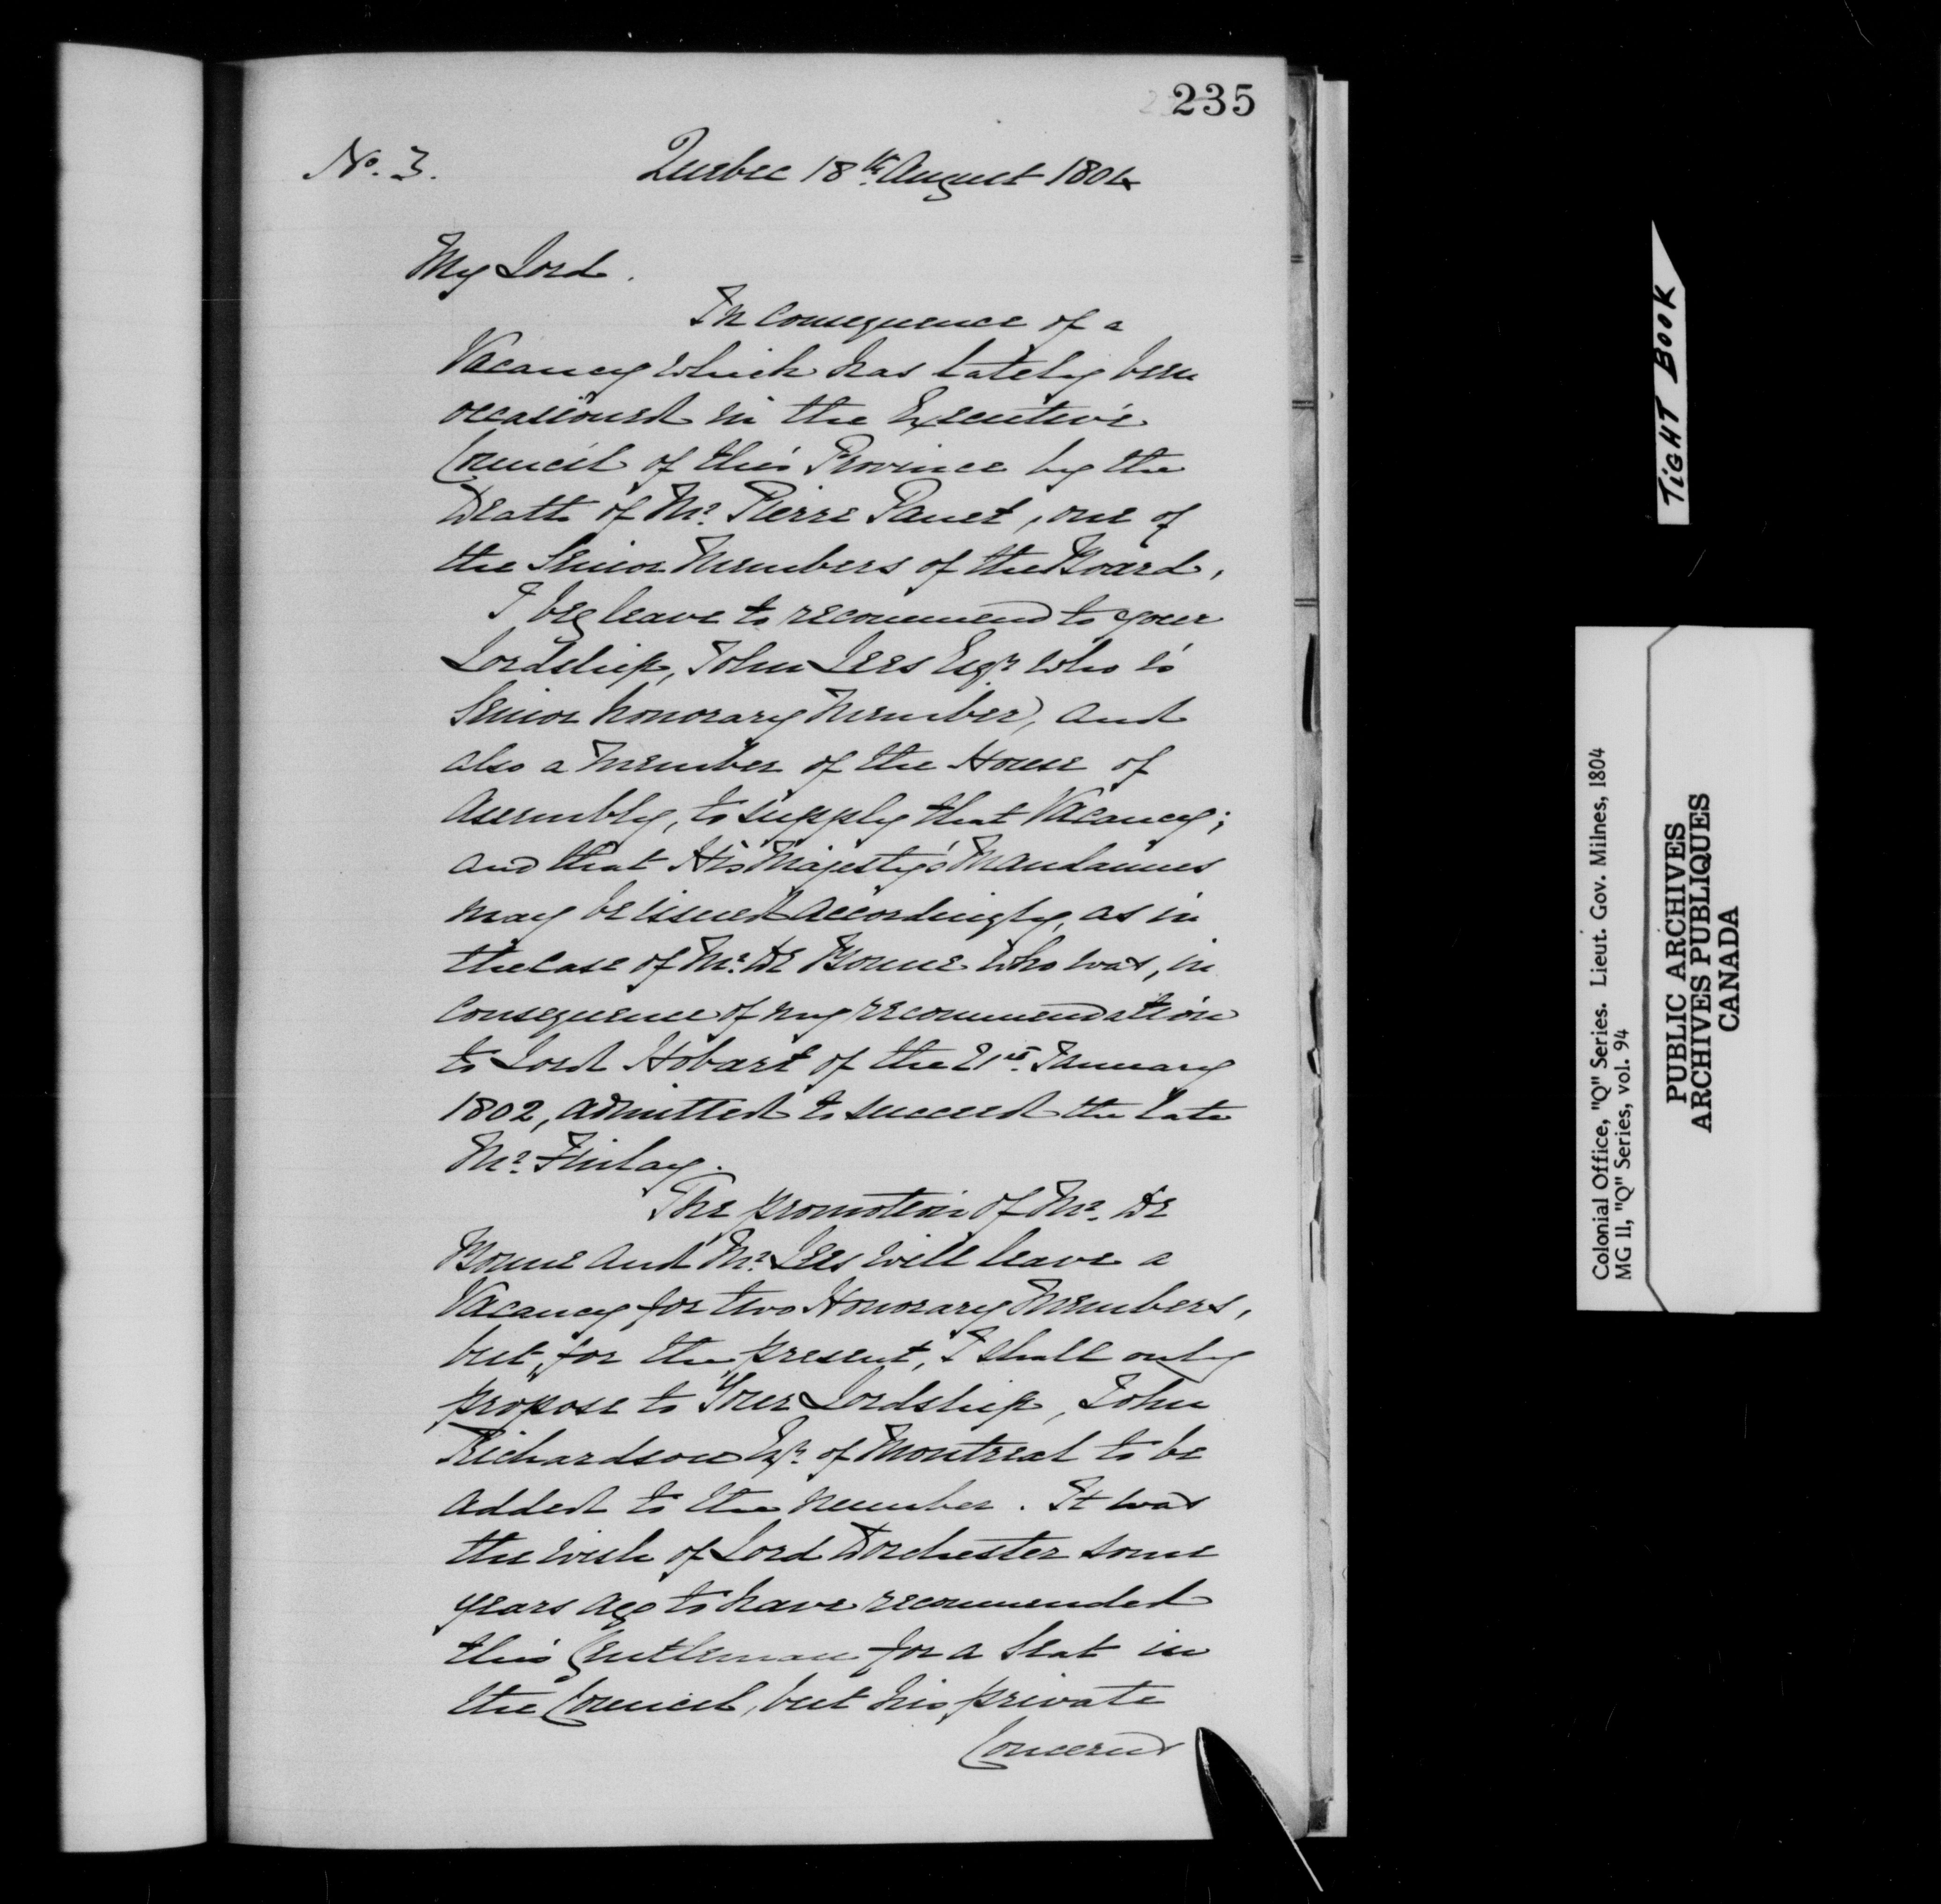 235
No. 3.
Quebec 18th. August 1804
My Lord.
In Consequence of a
Vacancy which has lately been
occasioned in the Executive
Council of this Province by the
Death of Mr. Pierre Panet, one of
the Senior Members of the Board,
I beg leave to recommend to your
Lordship, John Lees Esqr. who is
Senior honorary Member, and
also a Member of the House of
Assembly, to supply that Vacancy;
and that His Majesty's Mandamus
may be issued accordingly, as in
the case of Mr. De Bonne who was, in
consequence of my recommendation
to Lord Hobart of the 21st. January
1802, admitted to succeed the late
Mr. Finlay.
The promotion of Mr. De
Bonne and Mr. Lees will leave a
Vacancy for two Honorary Members,
but, for the present, I shall only
propose to Your Lordship, John
Richardson Esqr. of Montreal to be
added to the number. It was
the wish of Lord Dorchester some
years ago to have recommended
this Gentleman for a Seat in
the Council, but his private
Concerns
TIGHT BOOK
Colonial Office, "Q" Series. Lieut. Gov. Milnes, 1804
MG 11, "Q" Series, vol. 94
PUBLIC ARCHIVES
ARCHIVES PUBLIQUES
CANADA